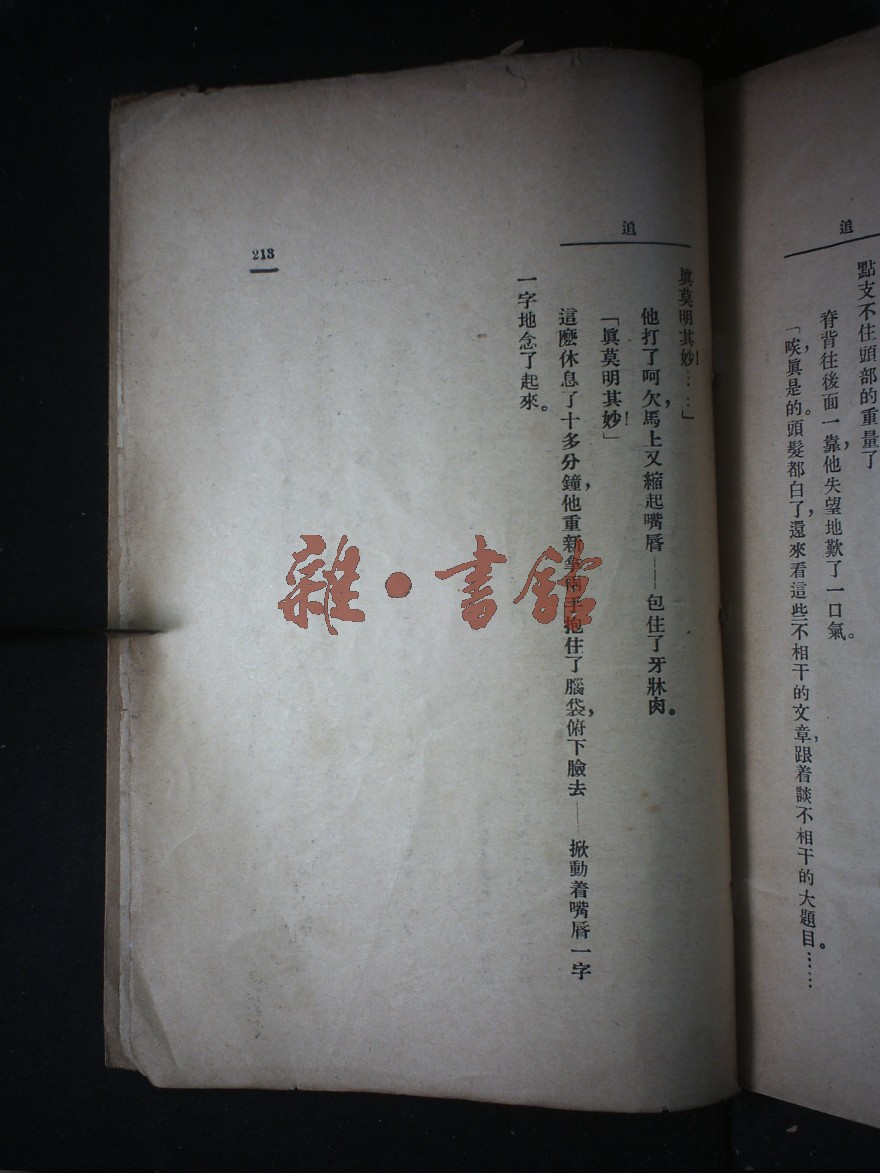 追
點支不住頭部的重量了
脊背往後面一靠,他失望地歎了一口氣。
「唉,眞是的。頭髮都白了,還來看這些不相干的文章,跟着談不相干的大題目……
追
眞莫明其妙……」
他打了呵欠,馬上又縮起嘴唇——包住了牙牀肉。
「眞莫明其妙!」
這麼休息了十多分鐘,他重新拿兩手抱住了腦袋,俯下臉去——掀動着嘴唇一字
一字地念了起來。
213
雜·書館